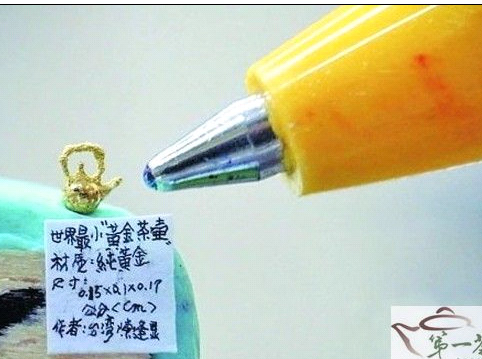 世界最小"黃金茶壺"
材质:純黃金
尺寸:
0.15×0.1×0.17
公分<cm>
作者:台湾陳逢显
第一